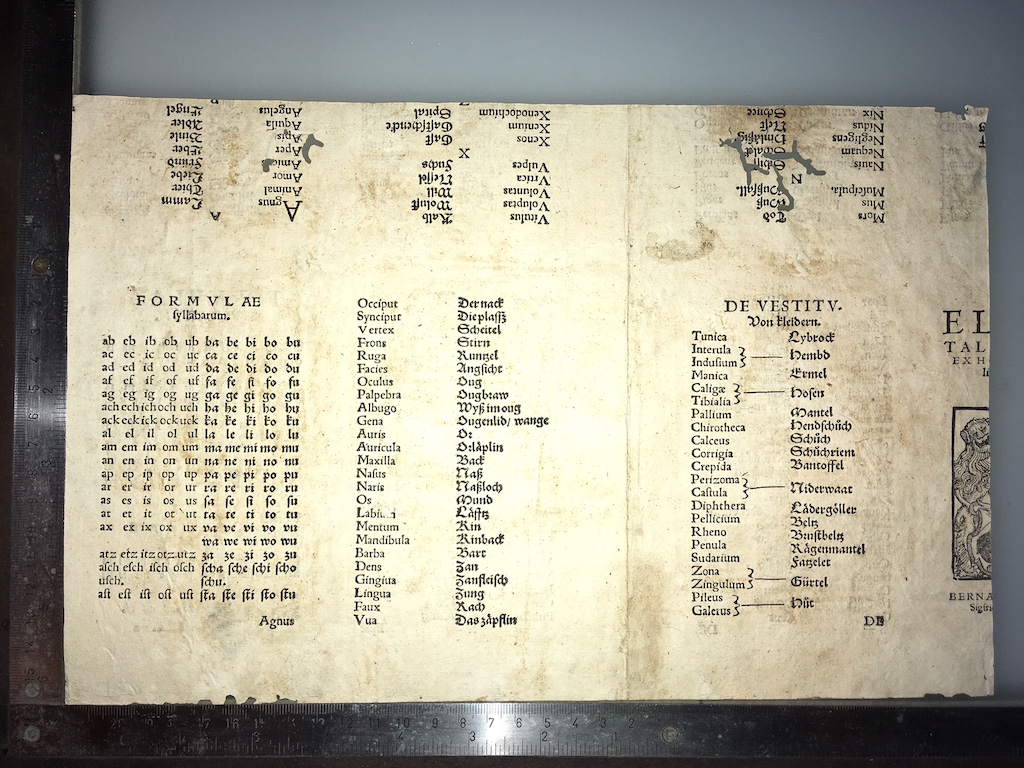 FORMVLAE
syllabarum.
ab eb ib ob ub ba be bi bo bu
ac ec ic oc uc ca ce ci co cu
ad ed id od ud da de di do du
af ef if of uf fa fe fi fo fu
ag eg ig og ug ga ge gi go gu
ach ech ich och uch ha he hi ho hu
ack eck ick ock uck ka ke ki ko ku
al el il ol ul la le li lo lu
am em im om um ma me mi mo mu
an en in on un na ne ni no nu
ap ep ip op up pa pe pi po pu
ar er ir or ur ra re ri ro ru
as es is os us sa se si so su
at et it ot ut ta te ti to tu
ax ex ix ox ux va ve vi vo vu
wa we wi wo wu
atz etz itz otz utz za ze zi zo zu
asch esch isch osch scha sche schi scho
usch. schu.
ast est ist ost ust sta ste sti sto stu
Agnus
Occiput Der nack
Synciput Die plassz
Vertex Scheitel
Frons Stirn
Ruga Runtzel
Facies Angsicht
Oculus Oug
Palpebra Ougbraw
Albugo Wyß im oug
Gena Ougenlid/ wange
Auris Or
Auricula Orläplin
Maxilla Back
Nasus Naß
Naris Naßloch
Os Mund
Labiu Läfftz
Mentum Kin
Mandibula Kinback
Barba Bart
Dens Zan
Gingiua Zanfleisch
Lingua Zung
Faux Rach
Vua Das zäpflin
DE VESTITV.
Von kleidern.
Tunica Lybrock
Interula
Indusium Hembd
Manica Ermel
Caligæ
Tibialia Hosen
Pallium Mantel
Chirotheca Hendschüch
Calceus Schüch
Corrigia Schüchriem
Crepida Bantoffel
Perizoma
Castula Niderwaat
Diphthera Lädergöller
Pellicium Beltz
Rheno Brustbeltz
Penula Rägenmantel
Sudarium Fatzelet
Zona
Zingulum Gürtel
Pileus
Galerus Hüt
DE
EL
TAL
EX H
BERNA
Sigfri
A
Agnus Lamm
Animal Thier
Amor Liebe
Amica Fründ
Aper Eber
Apis Binle
Aquila Adler
Angelus Engel
Vitulus Kalb
Voluptas Wolust
Voluntas Will
Vrtica Nessel
Vulpes Fuchs
X
Xenos Gast
Xenium Gastschencke
Xenodochium Spital
Mors Tod
Mus Muß
Muscipula Mußfall
N
Nauis Schiff
Nequam Schalck
Negligens Hinläßig
Nidus Nest
Nix Schnee